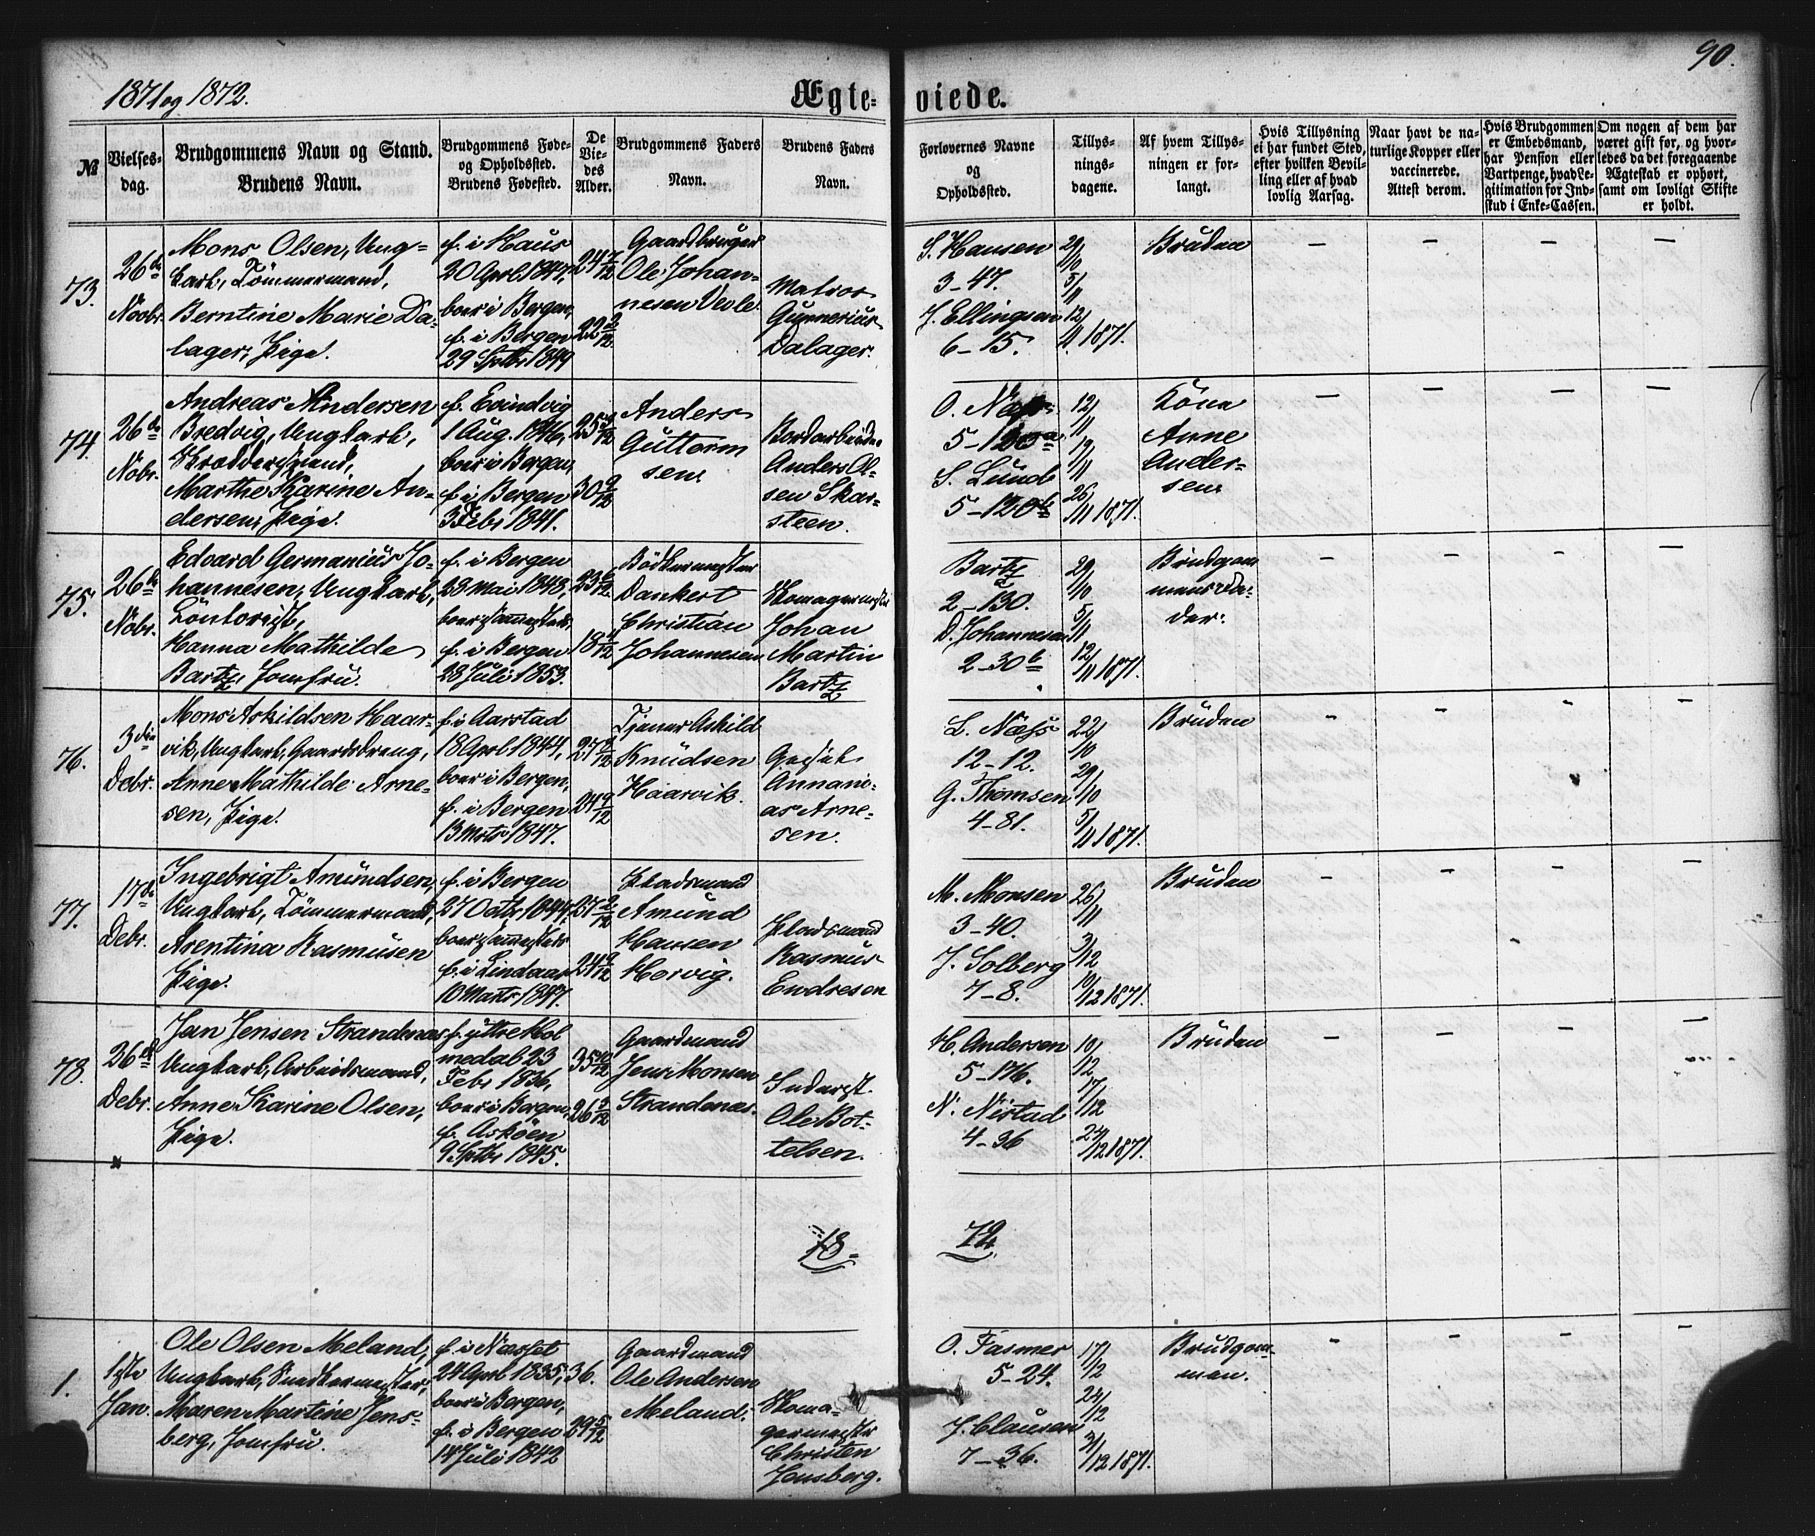 1871 og 1872.
Ægteviede.
90.
№
Vielsesdag.
Brudgommens Navn og Stand.
Brudens Navn.
Brudgommens Føde-
og Opholdssted.
Brudens Fødested.
De
Vie-
des
Alder.
Brudgommens Faders
Navn.
Brudens Faders
Navn.
Forlovernes Navne
og
Opholdssted.
Tillys-
nings-
dagene.
Af hvem Tillys-
ningen er for-
langt.
Hvis Tillysning
ei har fundet Sted,
efter hvilken Bevil-
ling eller af hvad
lovlig Aarsag.
Naar havt de na-
turlige Kopper eller
vaccinerede.
Attest derom.
Hvis Brudgommen
er Embedsmand,
har Pension eller
Vartpenge, hvad Le-
gitimation for Ind-
skud i Enke-Cassen.
Om nogen af dem har
været gift før, og hvor-
ledes da det foregaaende
Ægteskab er ophørt,
samt om lovligt Skifte
er holdt.
73.
26de
Novbr.
Mons Olsen, Ung-
karl, Tömmermand,
Berntine Marie Da-
lager, Pige.
f. i Haus
20 April 1847,
boer i Bergen,
f. i Bergen
29 Septbr 1849
24 7/12
22 2/12
Gaardbruger
Ole Johan-
nesen Vevle
Matros
Gunnerius
Dalager.
S. Hansen
3-47.
J. Ellingsen
6-15.
29/10
5/11
12/11 1871.
Bruden
— — — —
74.
26de
Nobr.
Andreas Andersen
Bredvig, Ungkarl,
Skræddersvend,
Marthe Karine An-
dersen, Pige.
f. Evindvig
1 Aug. 1846,
boer i Bergen,
f. i Bergen
3 Febr 1841.
25 3/12
30 9/12
Anders
Guttorm
sen.
Bordarbeider
Anders Ol-
sen Skar-
steen.
O. Næss
5-120a
S. Lund
5-120b
12/11
19/11
26/11 1871.
Kone
Anne
Ander-
sen.
— — — —
75.
26de
Nobr.
Edvard Germanius Jo-
hannesen, Ungkarl,
Contorist,
Hanna Mathilde
Bartz, Jomfru.
f. i Bergen
28 Mai 1848,
boer sammesteds,
f. i Bergen
28 Juli 1853.
23 6/12
18 4/12
Bödkermester
Dankert
Christian
Johannesen
Skomagermester
Johan
Martin
Bartz
Bartz
2-130.
D. Johannesen
2-30b
29/10
5/11
12/11 1871.
Brudgom
mens Fa-
der.
— — — —
76.
3die
Debr.
Mons Askildsen Haar-
vik, Ungkarl, Gaardsdreng,
Anne Mathilde Arne-
sen, Pige.
f. i Aarstad
18 April 1844,
boer i Bergen,
f. i Bergen
13 Marts 1847.
27 7/12
24 9/12
Tjener Askild
Knudsen
Haarvik.
Gesel
Annani-
as Arne-
sen.
L. Næss
12-12.
G. Thomsen
4-81.
22/10
29/10
5/11 1871.
Bruden
— — — —
77.
17de
Debr.
Ingebrigt Amundsen,
Ungkarl, Tömmermand,
Arentina Rasmusen
Pige.
f. i Bergen
27 Octbr 1844,
boer sammesteds
f. i Lindaas
10 Marts 1847.
27 2/12
24 9/12
Pladsmand
Amund
Hansen
Horvig.
Pladsmand
Rasmus
Endresen
M. Monsen
3-40.
J. Solberg
7-8.
26/11
3/12
10/12 1871.
Bruden
— — — —
78.
26de
Debr.
Jan Jensen Strandenæs
Ungkarl, Arbeidsmand,
Anne Karine Olsen,
Pige.
f. yttre Hol
medal 23
Febr 1836,
boer i Bergen,
f. Asköen
9 Septbr 1845.
35 10/12
26 3/12
Gaardmand
Jens Monsen
Strandenæs.
Inderst.
Ole Bot-
telsen.
H. Andersen
5-176.
N. Nistad
4-36
10/12
17/12
24/12 1871.
Bruden
— — — —
78
1.
1ste
Jan.
Ole Olsen Meland,
Ungkarl, Snedkermester,
Maren Martine Jens-
berg, Jomfru.
f. i Næsset
24 April 1835,
boer i Bergen,
f. i Bergen
14 Juli 1842
36.
29 5/12
Gaardmand
Ole Andersen
Meland.
Skoma-
germester
Christen
Jensberg.
O. Fasmer
5-24.
J. Clausen
7-36.
17/12
24/12
31/12 1871.
Brudgom-
men.
— — — —